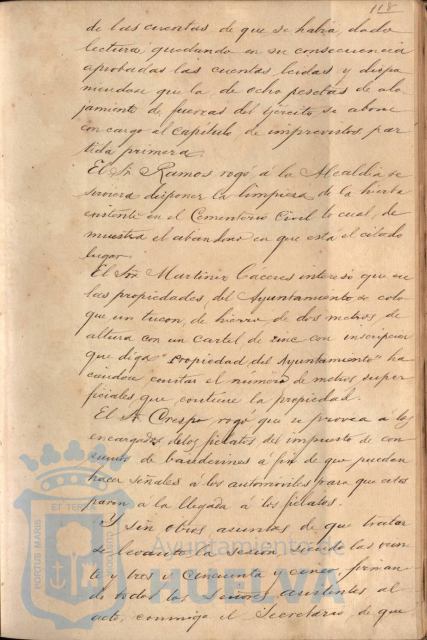 118
de las cuentas de que se había dado
lectura quedando en su consecuencia
aprobadas las cuentas leidas y dispo
niendose que la de ocho pesetas de alo
jamiento de fuerzas del Ejército se abone
con cargo al Capítulo de imprevistos par
tida primera.
El Sr. Ramos rogó á la Alcaldía se
sirviera disponer la limpieza de la hierba
existente en el Cementerio Civil lo cual, de
muestra el abandono en que está el citado
lugar.
El Sr. Martinez Cáceres interesó que en
las propiedades del Ayuntamiento se colo
que un de hierro de dos metros de
altura con un cartel de zinc con inscripcion
que diga "Propiedad del Ayuntamiento" ha
ciendose constar el número de metros super
ficiales que contiene la propiedad.
El Sr. Crespo rogó que se provea a los
encargados de los fielatos del impuesto de con
sumos de banderines á fin de que puedan
hacer señales á los automóviles para que estos
paren á la llegada á los fielatos.
Y sin otros asuntos de que tratar
se levantó la sesion siendo las vein
te y tres y cincuenta y cinco, firman
do todos los Señores asistentes al
acto, conmigo el Secretario de que
PORTUS MARIS ET TERRAE CUSTODIA
Ayuntamiento de
HUELVA